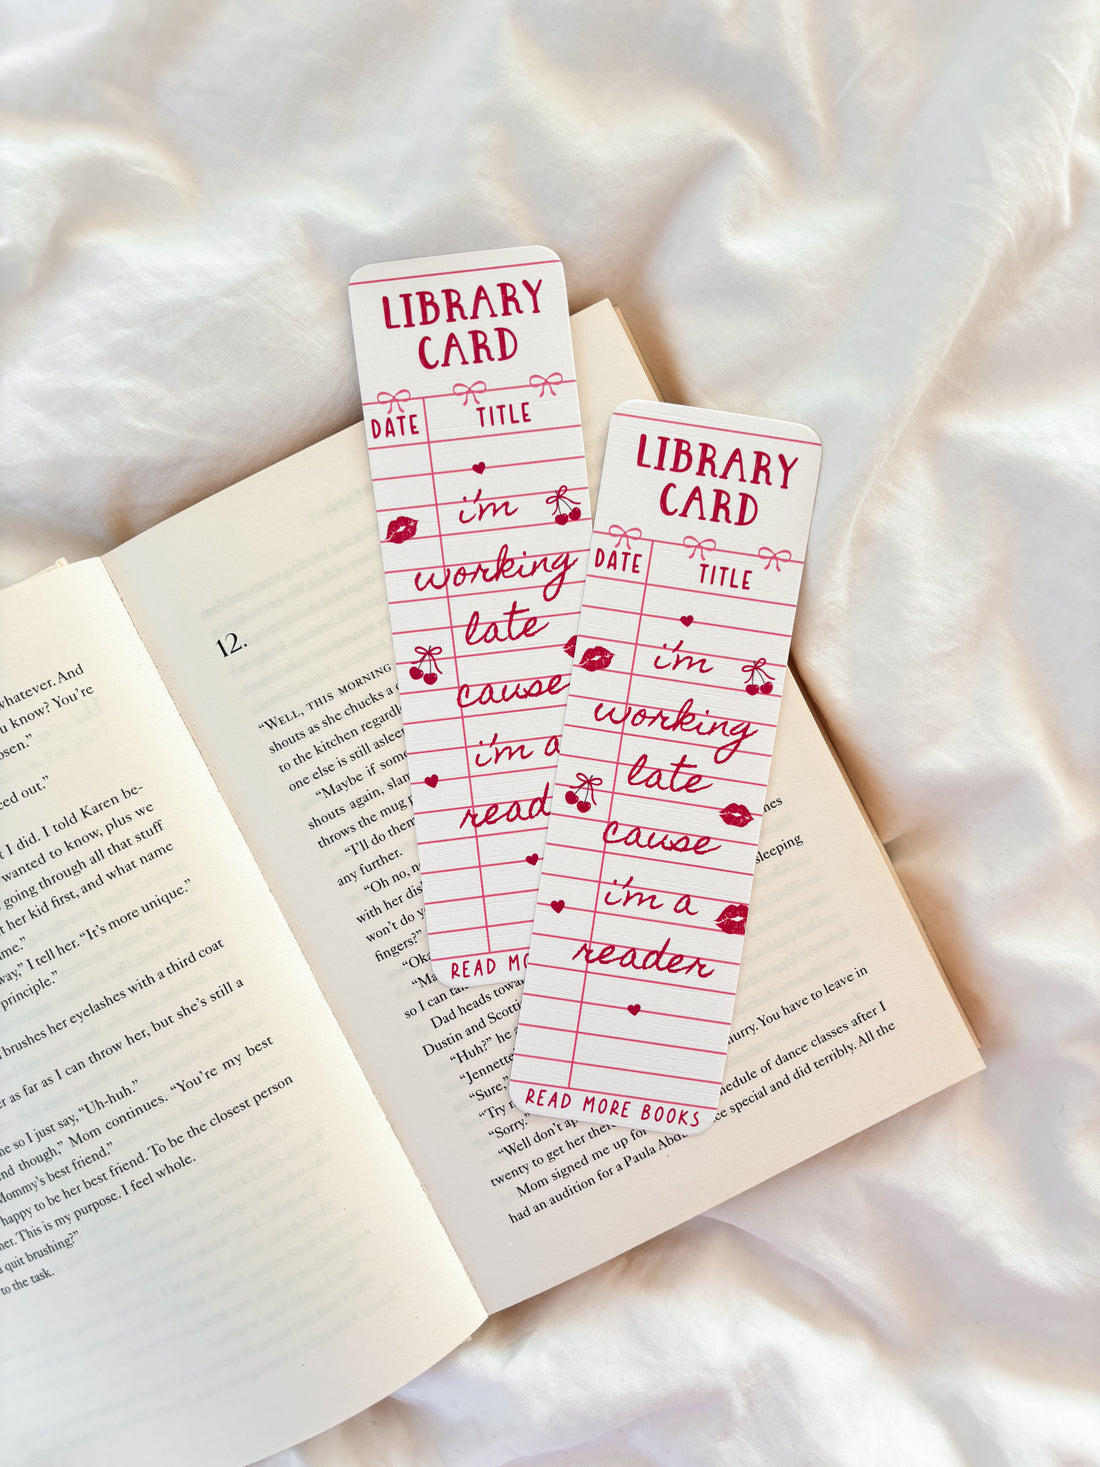 LIBRARY
CARD
DATE TITLE
i'm
working
late
cause
i'm a
read
READ MO
LIBRARY
CARD
DATE TITLE
i'm
working
late
cause
i'm a
reader
READ MORE BOOKS
whatever. And
know? You're
osen."
ced out."
I did. I told Karen be-
wanted to know, plus we
going through all that stuff
her kid first, and what name
me."
way," I tell her. "It's more unique."
principle."
brushes her eyelashes with a third coat
as far as I can throw her, but she's still a
me so I just say, "Uh-huh."
end though," Mom continues. "You're my best
Mommy's best friend."
happy to be her best friend. To be the closest person
her. This is my purpose. I feel whole.
quit brushing?"
to the task.
12.
"WELL, THIS MORNING
shouts as she chucks a
to the kitchen regardl
one else is still aslee
"Maybe if som
shouts again, slam
throws the mug
"I'll do them
any further.
"Oh no, n
with her dis
won't do y
fingers?"
"Oka
"Ma
so I can tak
Dad heads towar
Dustin and Scotti
"Huh?" he
"Jennette
"Sure,"
"Try
"Sorry."
"Well don't ap hurry. You have to leave in
twenty to get her there
Mom signed me up for hedule of dance classes after I
had an audition for a Paula Abd ce special and did terribly. All the
hes
sleeping